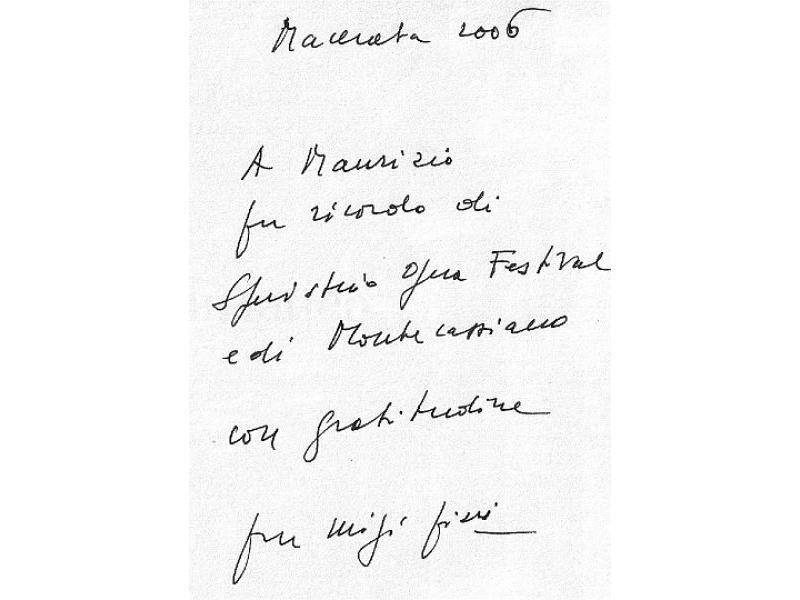 Macerata 2006
A Maurizio
per ricordo di
Sferisterio Opera Festival
e di Montecassiano
con gratitudine
Pier Luigi Pizzi